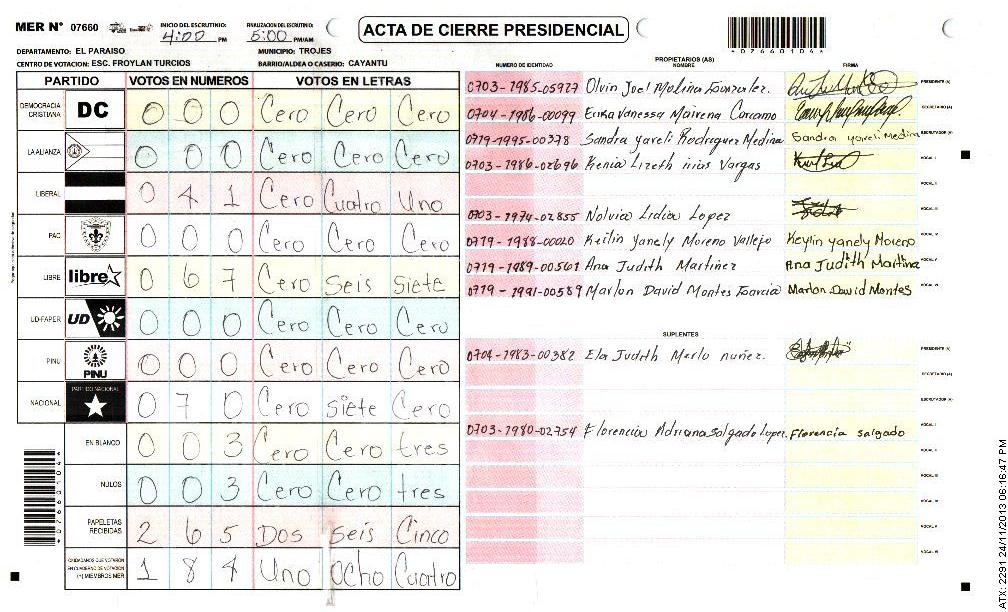 MER N° 07660
INICIO DEL ESCRUTINIO: 4:00 PM
FINALIZACION DEL ESCRUTINIO: 5:00 PM/AM
ACTA DE CIERRE PRESIDENCIAL
*07660104*
DEPARTAMENTO: EL PARAISO
MUNICIPIO: TROJES
CENTRO DE VOTACION: ESC. FROYLAN TURCIOS
BARRIO/ALDEA O CASERIO: CAYANTU
PARTIDO VOTOS EN NUMEROS VOTOS EN LETRAS
DEMOCRACIA CRISTIANA DC 0 0 0 Cero Cero Cero
LA ALIANZA 0 0 0 Cero Cero Cero
LIBERAL 0 4 1 Cero Cuatro Uno
PAC 0 0 0 Cero Cero Cero
LIBRE libre 0 6 7 Cero Seis Siete
UD-FAPER UD 0 0 0 Cero Cero Cero
PINU PINU 0 0 0 Cero Cero Cero
NACIONAL PARTIDO NACIONAL 0 7 0 Cero Siete Cero
EN BLANCO 0 0 3 Cero Cero tres
NULOS 0 0 3 Cero Cero tres
PAPELETAS RECIBIDAS 2 6 5 Dos Seis Cinco
CIUDADANOS QUE VOTARON EN CUADERNO DE VOTACION (+) MIEMBROS MER 1 8 4 Uno Ocho Cuatro
PROPIETARIOS (AS)
NUMERO DE IDENTIDAD NOMBRE FIRMA
0703-1985-05927 Olvin Joel Molina Gonzalez. PRESIDENTE (A)
0704-1986-00099 Erika Vanessa Mairena Carcamo SECRETARIO (A)
0719-1995-00378 Sandra yareli Rodriguez Medina Sandra yareli Medina ESCRUTADOR (A)
0703-1986-02696 Kenia Lizeth irias Vargas VOCAL I
VOCAL II
0703-1974-02855 Nolvia Lidia Lopez VOCAL III
0719-1988-00020 Keilin yanely Moreno Vallejo Keylin yanely Moreno VOCAL IV
0719-1989-00561 Ana Judith Martinez Ana Judith Martina VOCAL V
0719-1991-00589 Marlon David Montes Garcia Marlon David Montes VOCAL VI
SUPLENTES
0704-1983-00382 Ela Judith Merlo nuñez. PRESIDENTE (A)
SECRETARIO (A)
ESCRUTADOR (A)
0703-1980-02754 Florencia Adriana Salgado Lopez. Florencia salgado VOCAL I
VOCAL II
VOCAL III
VOCAL IV
VOCAL V
VOCAL VI
*07660104*
ATX: 2291 24/11/2013 06:16:47 PM